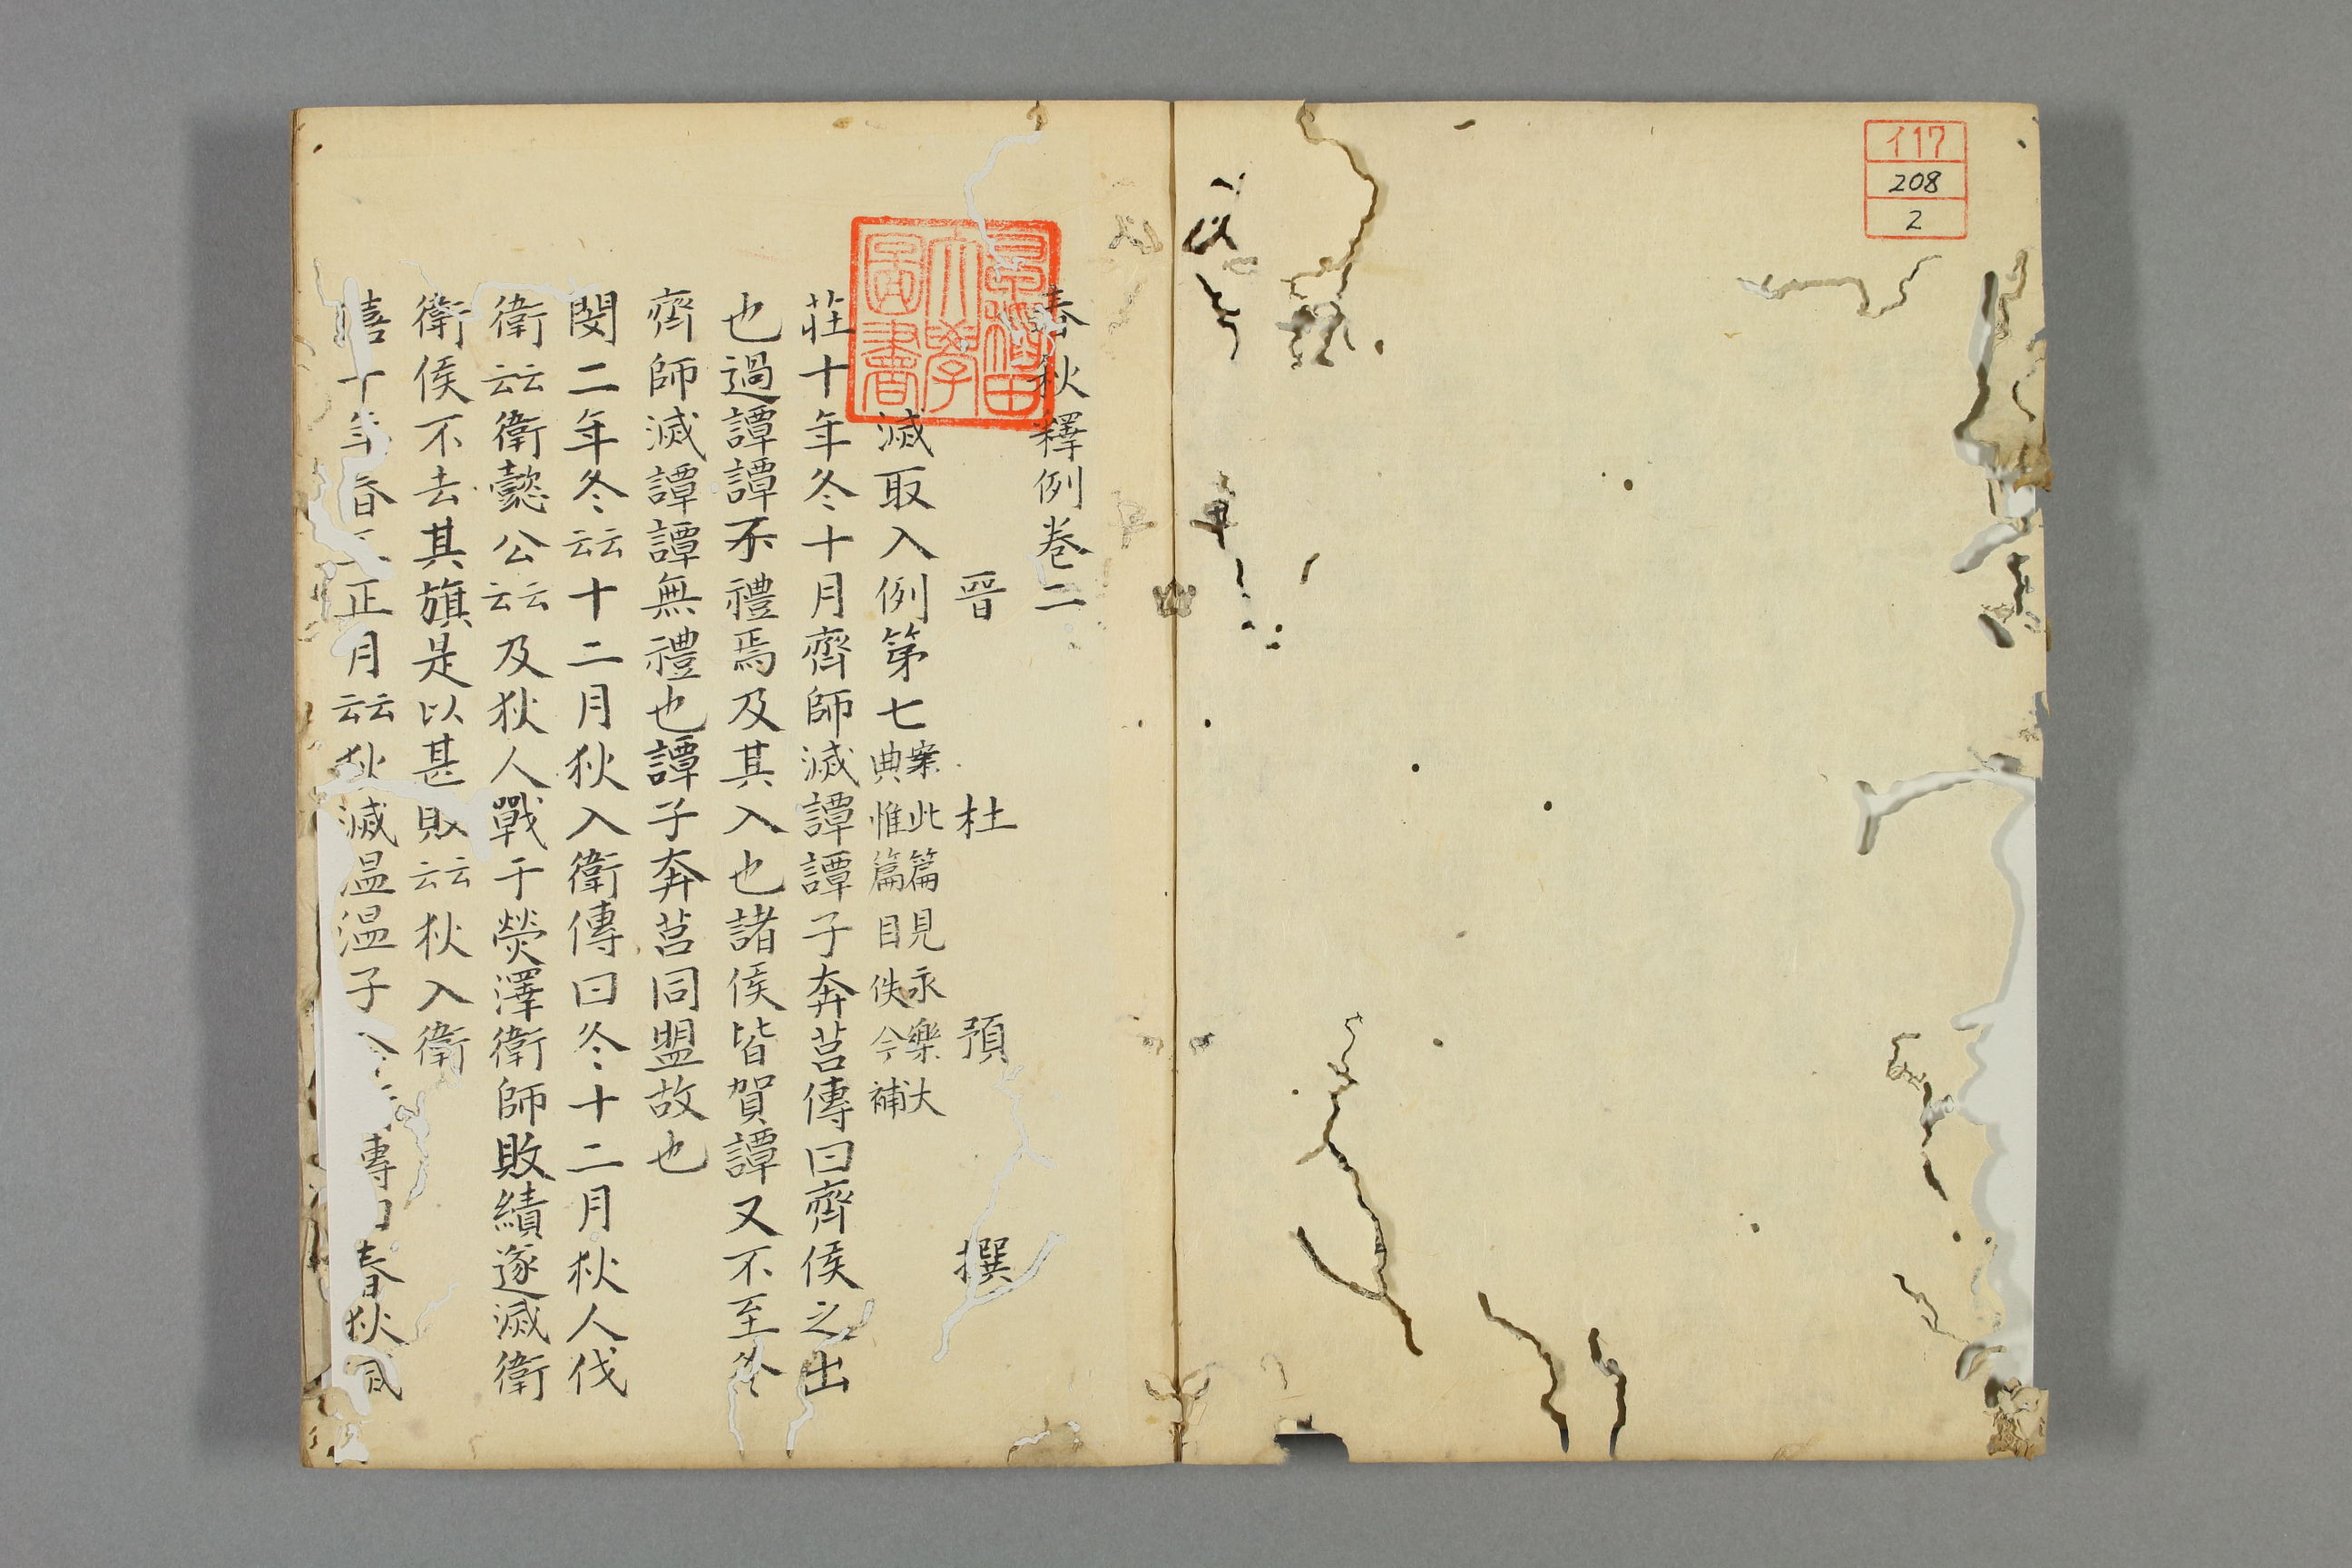 イ17
208
2
春秋釋例卷二
晉 杜 預 撰
滅取入例第七案此篇見永樂大
典惟篇目佚今補
莊十年冬十月齊師滅譚譚子奔莒傳曰齊侯之出
也過譚譚不禮焉及其入也諸侯皆賀譚又不至冬
齊師滅譚譚無禮也譚子奔莒同盟故也
閔二年冬云云十二月狄入衛傳曰冬十二月狄人伐
衛云云衛懿公云云及狄人戰于熒澤衛師敗績遂滅衛
衛侯不去其旗是以甚敗云云狄入衛
僖十年春王正月云云狄滅温温子 傳曰春狄滅
早稻田大學圖書